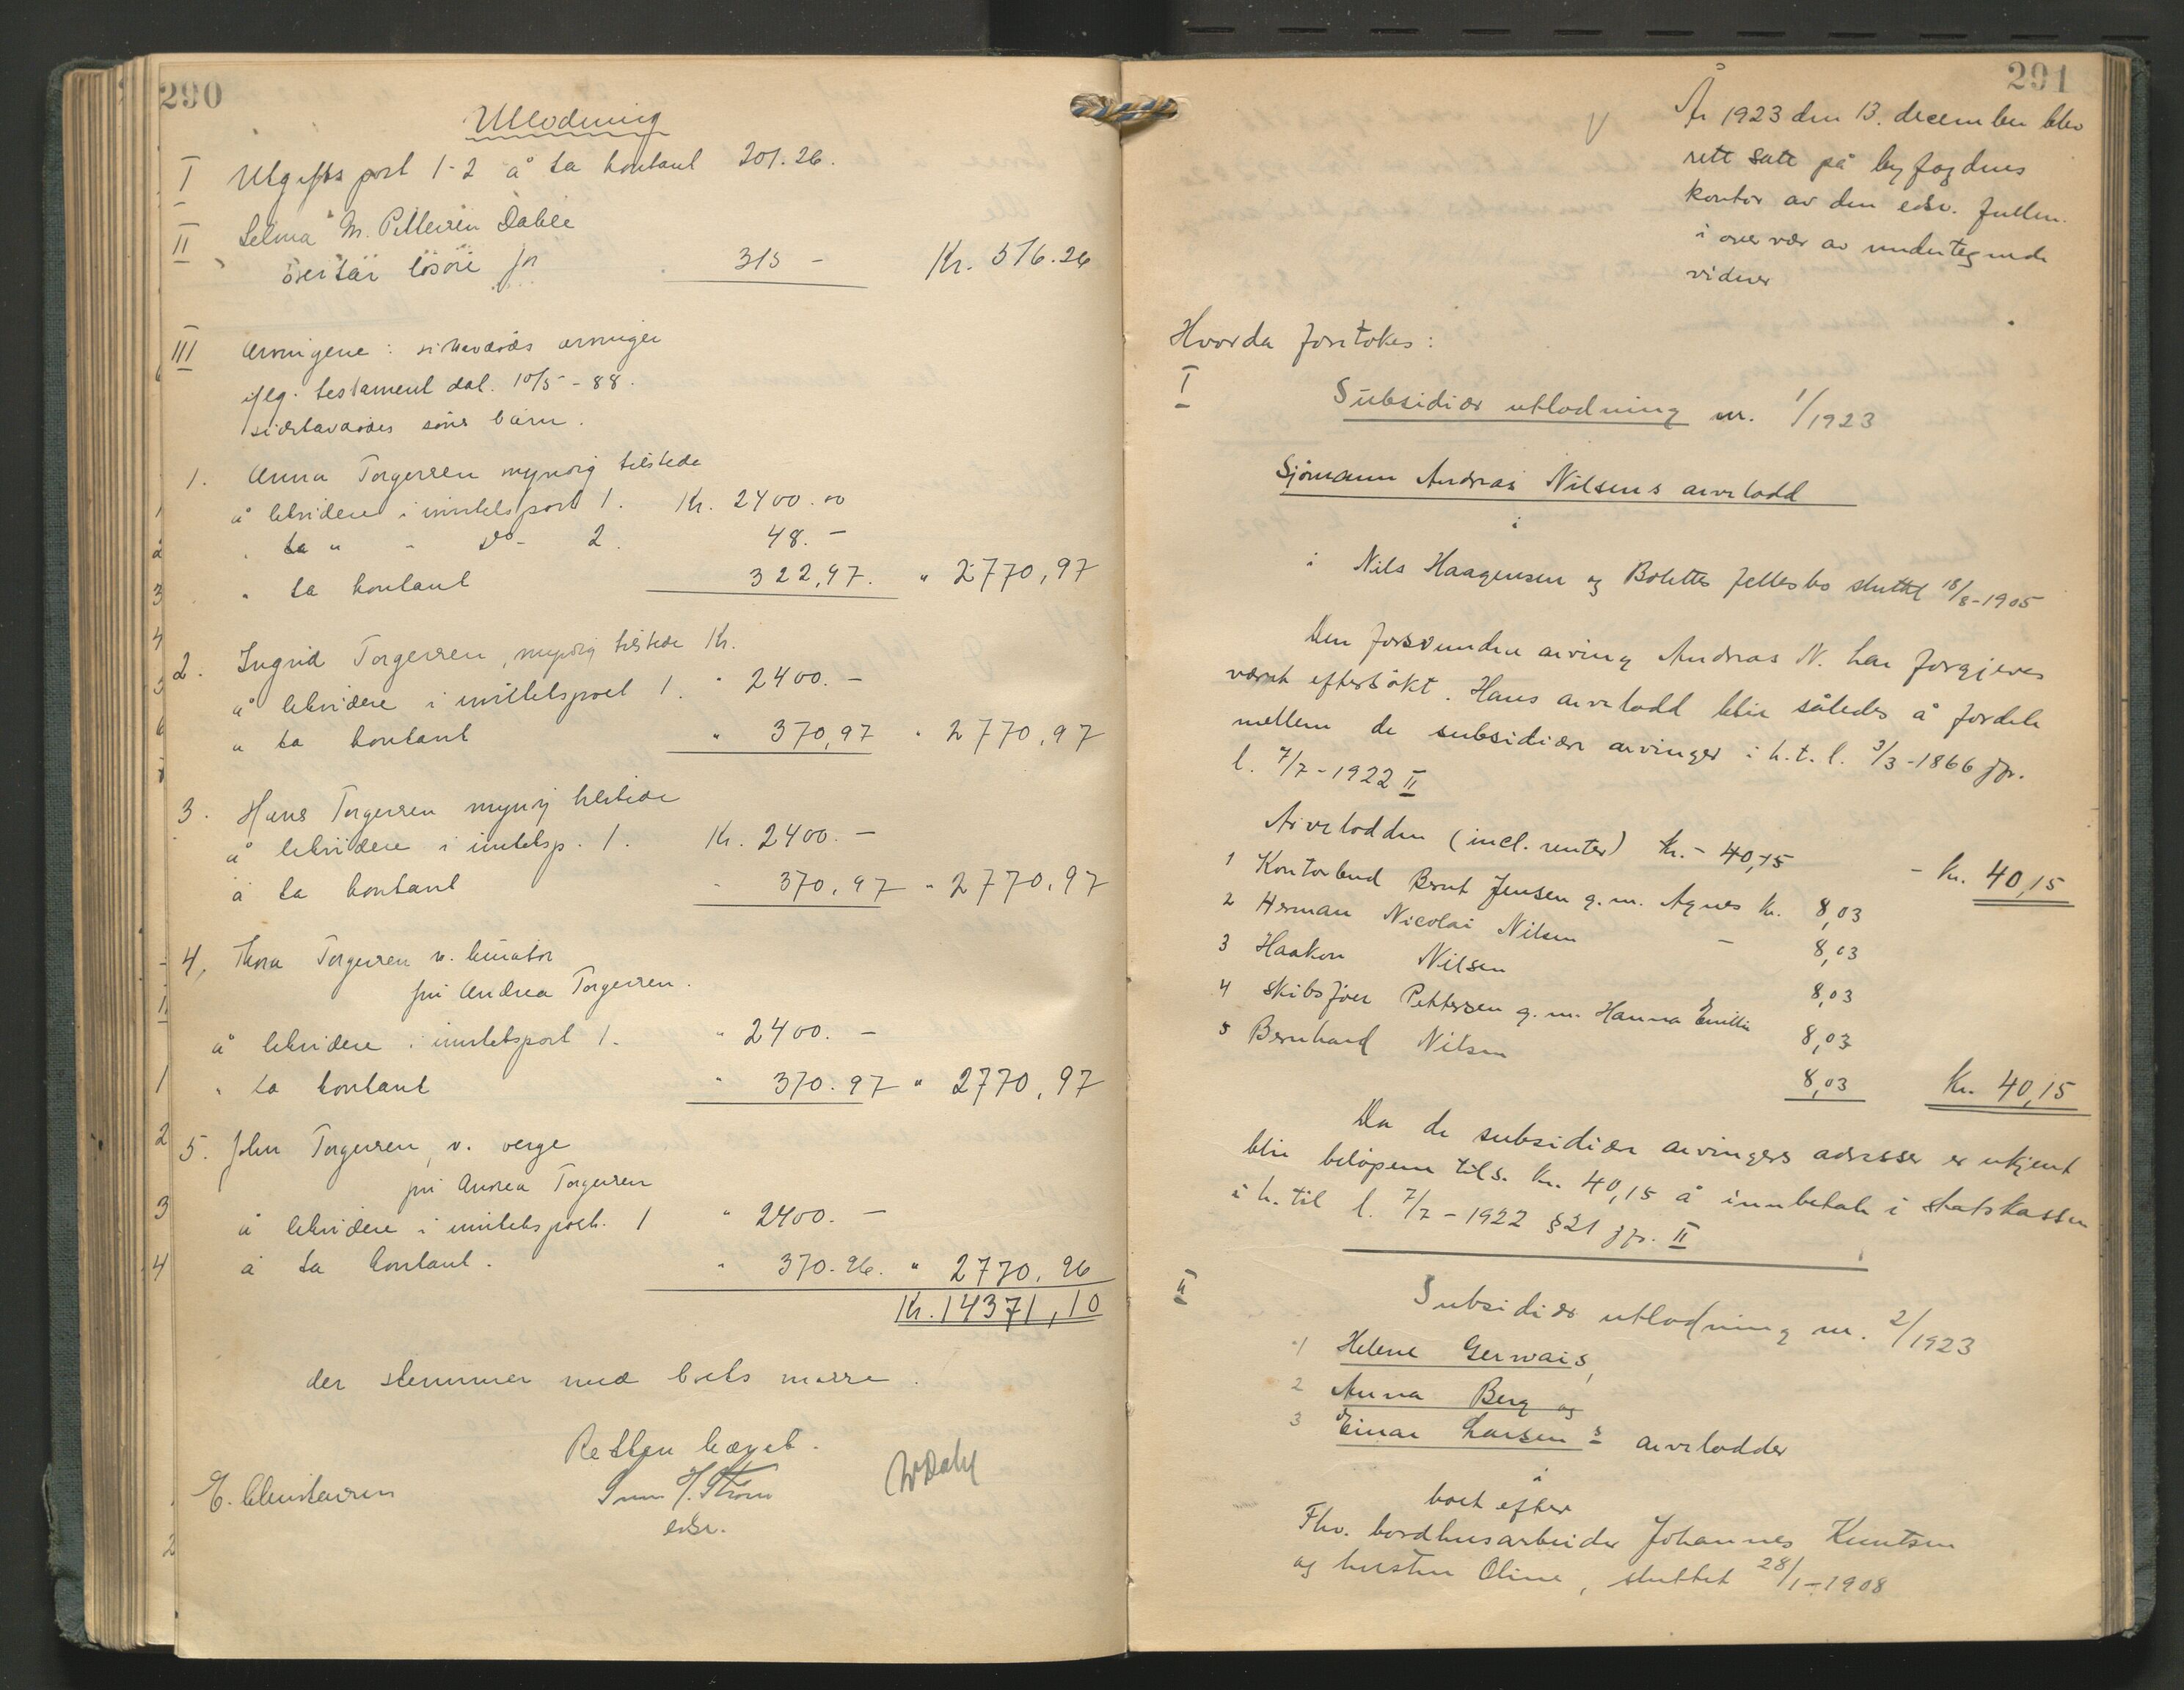 290
Utlodning
I Utgiftspost 1-2 å ta kontant 201.26.
II Selma M. Pettersen Dahle
løsøre for 315 - Kr. 516.26
III Arvingene : arvinger
iflg. testament dat. 10/5 - 88.
søns barn.
1. Anna Torgersen myndig tilstede
å likvidere i inntektspost 1. Kr. 2400.00
" ta " - do - 2. 48.-
" ta kontant 322,97. " 2770,97
2. Ingrid Torgersen, myndig tilstede Kr.
å likvidere i inntektspost 1. " 2400.-
" ta kontant " 370,97 " 2770,97
3. Hans Torgersen myndig tilstede
å likvidere i inntektsp. 1. Kr. 2400.-
å ta kontant - 370,97 " 2770,97
4. Thora Torgersen v. kurator
fru Andrea Torgersen.
å likvidere i inntektspost 1. " 2400.-
" ta kontant " 370.97 " 2770,97
5. John Torgersen, v. verge
fru Andrea Torgersen
å likvidere i inntektspost. 1 " 2400.-
å ta kontant. " 370.96. " 2770,96
Kr. 14371,10
der stemmer med boets masse.
Retten hævet.
E. Christensen
edsv.
W Dahl
291
År 1923 den 13. december blev
rett satt på byfogdens
kontor av den edsv. fullm.
i overvær av undertegnede
vidner
Hvorda foretokes:
I Subsidiær utlodning nr. 1/1923
Sjømann Andreas Nilsens arvelodd
i Nils Haagensen og Bolettes fellesbo sluttet 18/8-1905
Den forsvundne arving Andreas N. har forgjeves
været eftersøkt. Hans arvelodd blir således å fordele
mellem de subsidiære arvinger i h.t. l. 3/3-1866 jfr.
l. 7/7-1922 II
Arvelodden (incl. renter) Kr. - 40,15 - Kr. 40,15
1 Kontorbud Bernt Jensen g.m. Agnes Kr. 8,03
2 Herman Nicolai Nilsen - 8,03
3 Haakon Nilsen 8,03
4 Skibsfører Pettersen g.m. Hanna Emilie 8,03
5 Bernhard Nilsen 8,03 Kr. 40,15
Da de subsidiære arvingers adresser er ukjent
blir beløpene tils. Kr. 40,15 å innbetale i statskassen
i h. til l. 7/7-1922 §21 jfr. II
II Subsidiær utlodning nr. 2/1923
1 Helene Gerwais,
2 Anna Berg og
3 Einar Larsens arvelodder
i
boet efter
Fhv. bordhusarbeider Johannes Knutsen
og hustru Oline, sluttet 28/1-1908